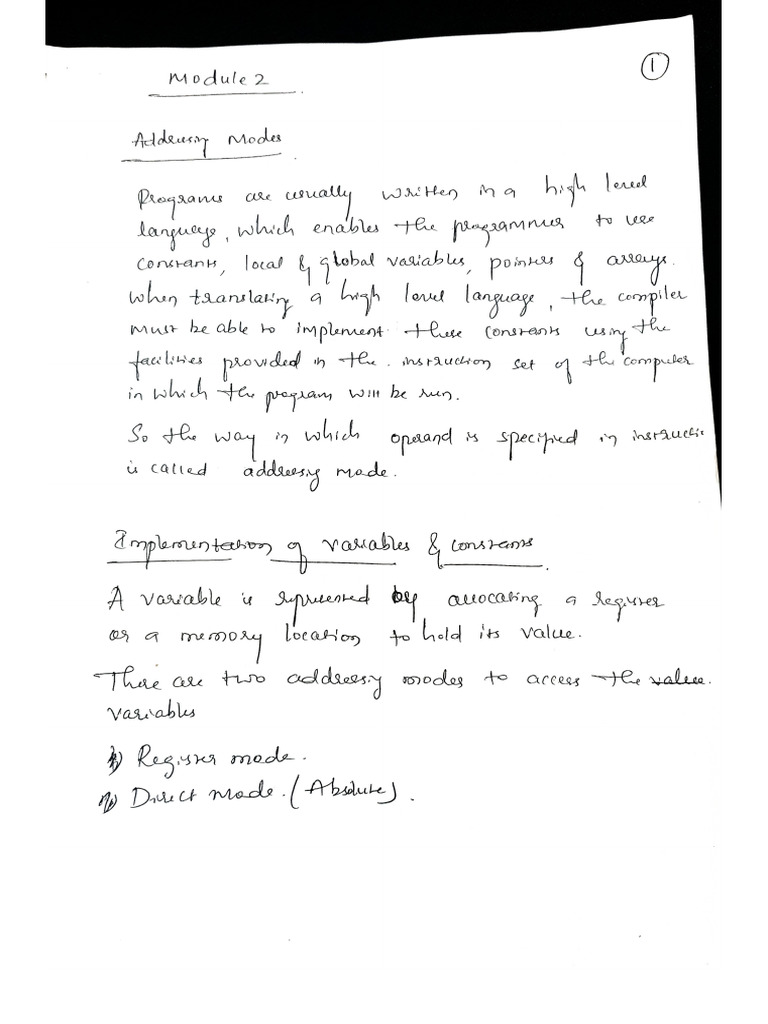 1
Module 2
Addressing Modes
Programs are usually written in a high level
language, which enables the programmer to use
constants, local & global variables, pointers & arrays.
When translating a high level language, the compiler
must be able to implement these constants using the
facilities provided in the instruction set of the computer
in which the program will be run.
So the way in which operand is specified in instructi
is called addressing mode.
Implementation of variables & constants.
A variable is represented by allocating a register
or a memory location to hold its value.
There are two addressing modes to access the value.
variables
i) Register mode.
ii) Direct mode. (Absolute).